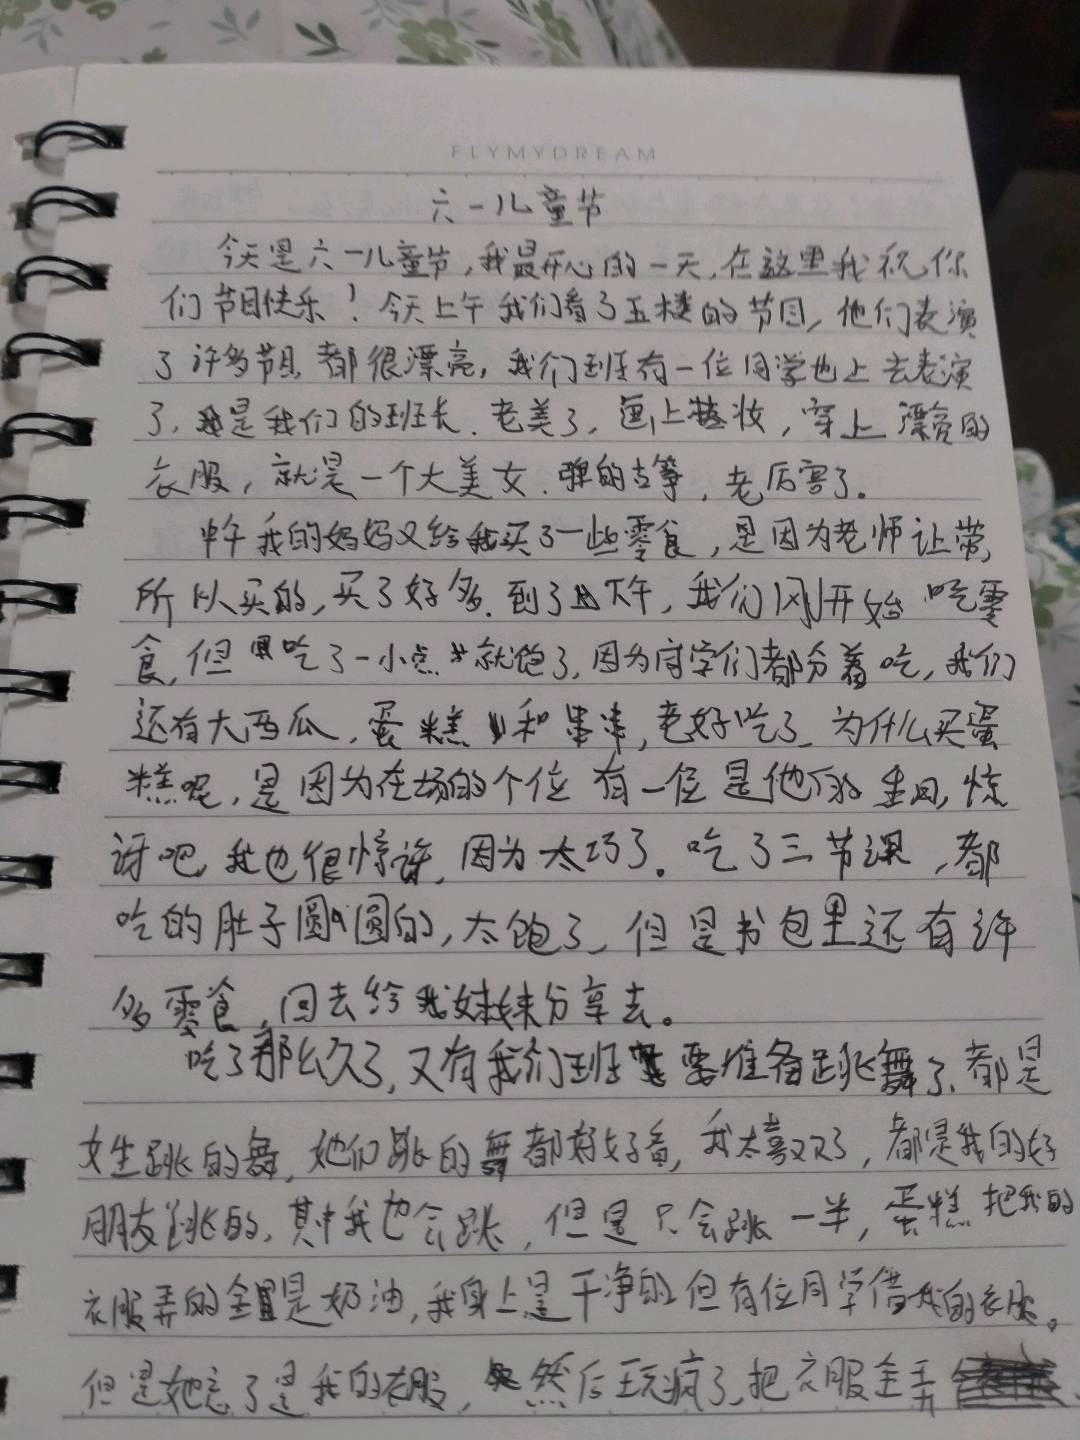 FLYMYDREAM
六一儿童节
今天是六一儿童节,我最开心的一天,在这里我祝你
们节目快乐!今天上午我们看了五楼的节目,他们表演
了许多节目,都很漂亮,我们班有一位同学也上去表演
了,是我们的班长.老美了,画上妆,穿上漂亮的
衣服,就是一个大美女.弹的古筝,老厉害了。
中午我的妈妈又给我买了一些零食,是因为老师让带,
所以买的,买了好多.到了下午,我们刚开始吃零
食,但只吃了一小点就饱了,因为同学们都分着吃,我们
还有大西瓜,蛋糕和串串,老好吃了.为什么买蛋
糕呢,是因为在场的个位有一位是他的生日,惊
讶吧,我也很惊讶,因为太巧了。吃了三节课,都
吃的肚子圆圆的,太饱了,但是书包里还有许
多零食,回去给我妹妹分享去。
吃了那么久了,又有我们班要准备跳舞了.都是
女生跳的舞,她们跳的舞都好好看,我太喜欢了,都是我的好
朋友跳的,其中我也会跳,但是只会跳一半,蛋糕把我的
衣服弄的全是奶油,我身上是干净的但有位同学借我的衣服。
但是她忘了是我的衣服,然后玩疯了,把衣服全弄